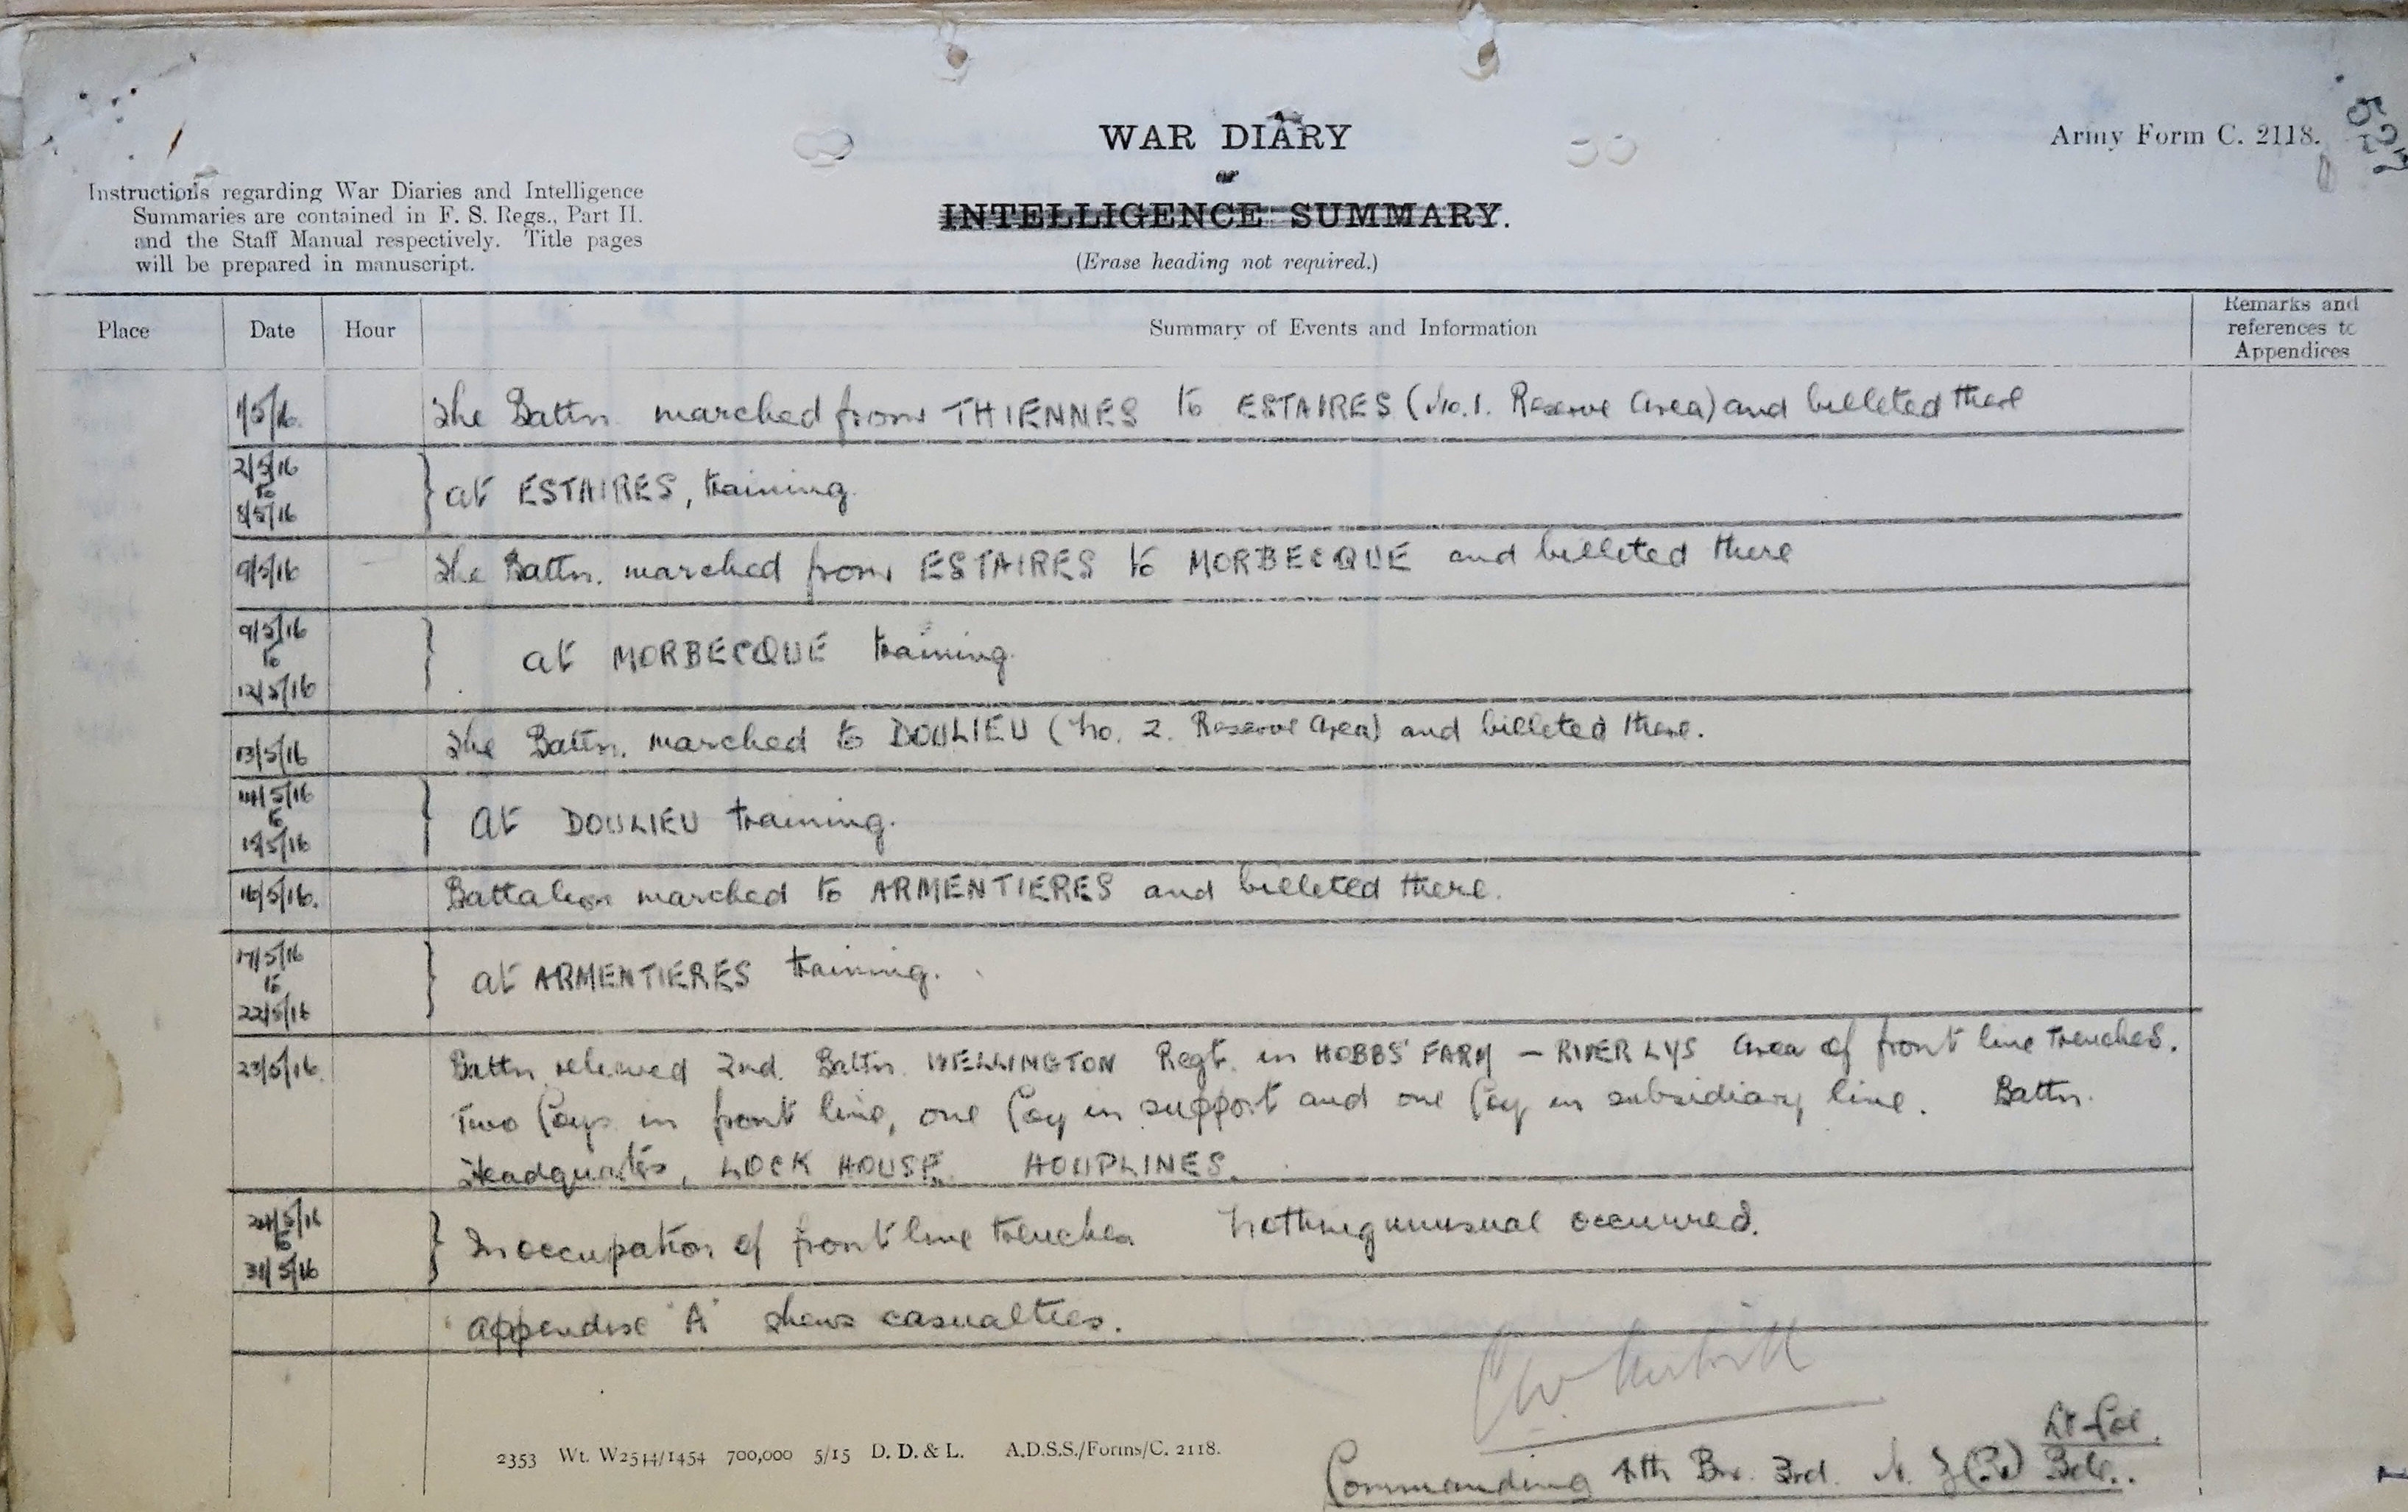 WAR DIARY
or
INTELLIGENCE SUMMARY.
(Erase heading not required.)
Army Form C. 2118.
Instructions regarding War Diaries and Intelligence
Summaries are contained in F. S. Regs., Part II.
and the Staff Manual respectively. Title pages
will be prepared in manuscript.
Place Date Hour Summary of Events and Information Remarks and references to Appendices
1/5/16. The Battn. marched from THIENNES to ESTAIRES (No.1. Reserve Area) and billeted there
2/5/16
to
8/5/16
} at ESTAIRES, training.
9/5/16 The Battn. marched from ESTAIRES to MORBECQUE and billeted there
9/5/16
to
12/5/16
} at MORBECQUE training.
13/5/16 The Battn. marched to DOULIEU (No. 2. Reserve Area) and billeted there.
14/5/16
to
15/5/16
} at DOULIEU training.
16/5/16. Battalion marched to ARMENTIERES and billeted there.
17/5/16
to
22/5/16
} at ARMENTIERES training.
23/5/16. Battn. relieved 2nd. Battn. WELLINGTON Regt. in HOBBS' FARM — RIVER LYS area of front line trenches.
Two Coys in front line, one Coy in support and one Coy in subsidiary line. Battn.
Headquarters, LOCK HOUSE, HOUPLINES.
24/5/16
to
31/5/16
} In occupation of front line trenches Nothing unusual occurred.
Appendix "A" shews casualties.
Lt-Col.
Commanding 4th Bn. 3rd. N. Z (R.) Bde..
2353 Wt. W2544/1454 700,000 5/15 D. D. & L. A.D.S.S./Forms/C. 2118.